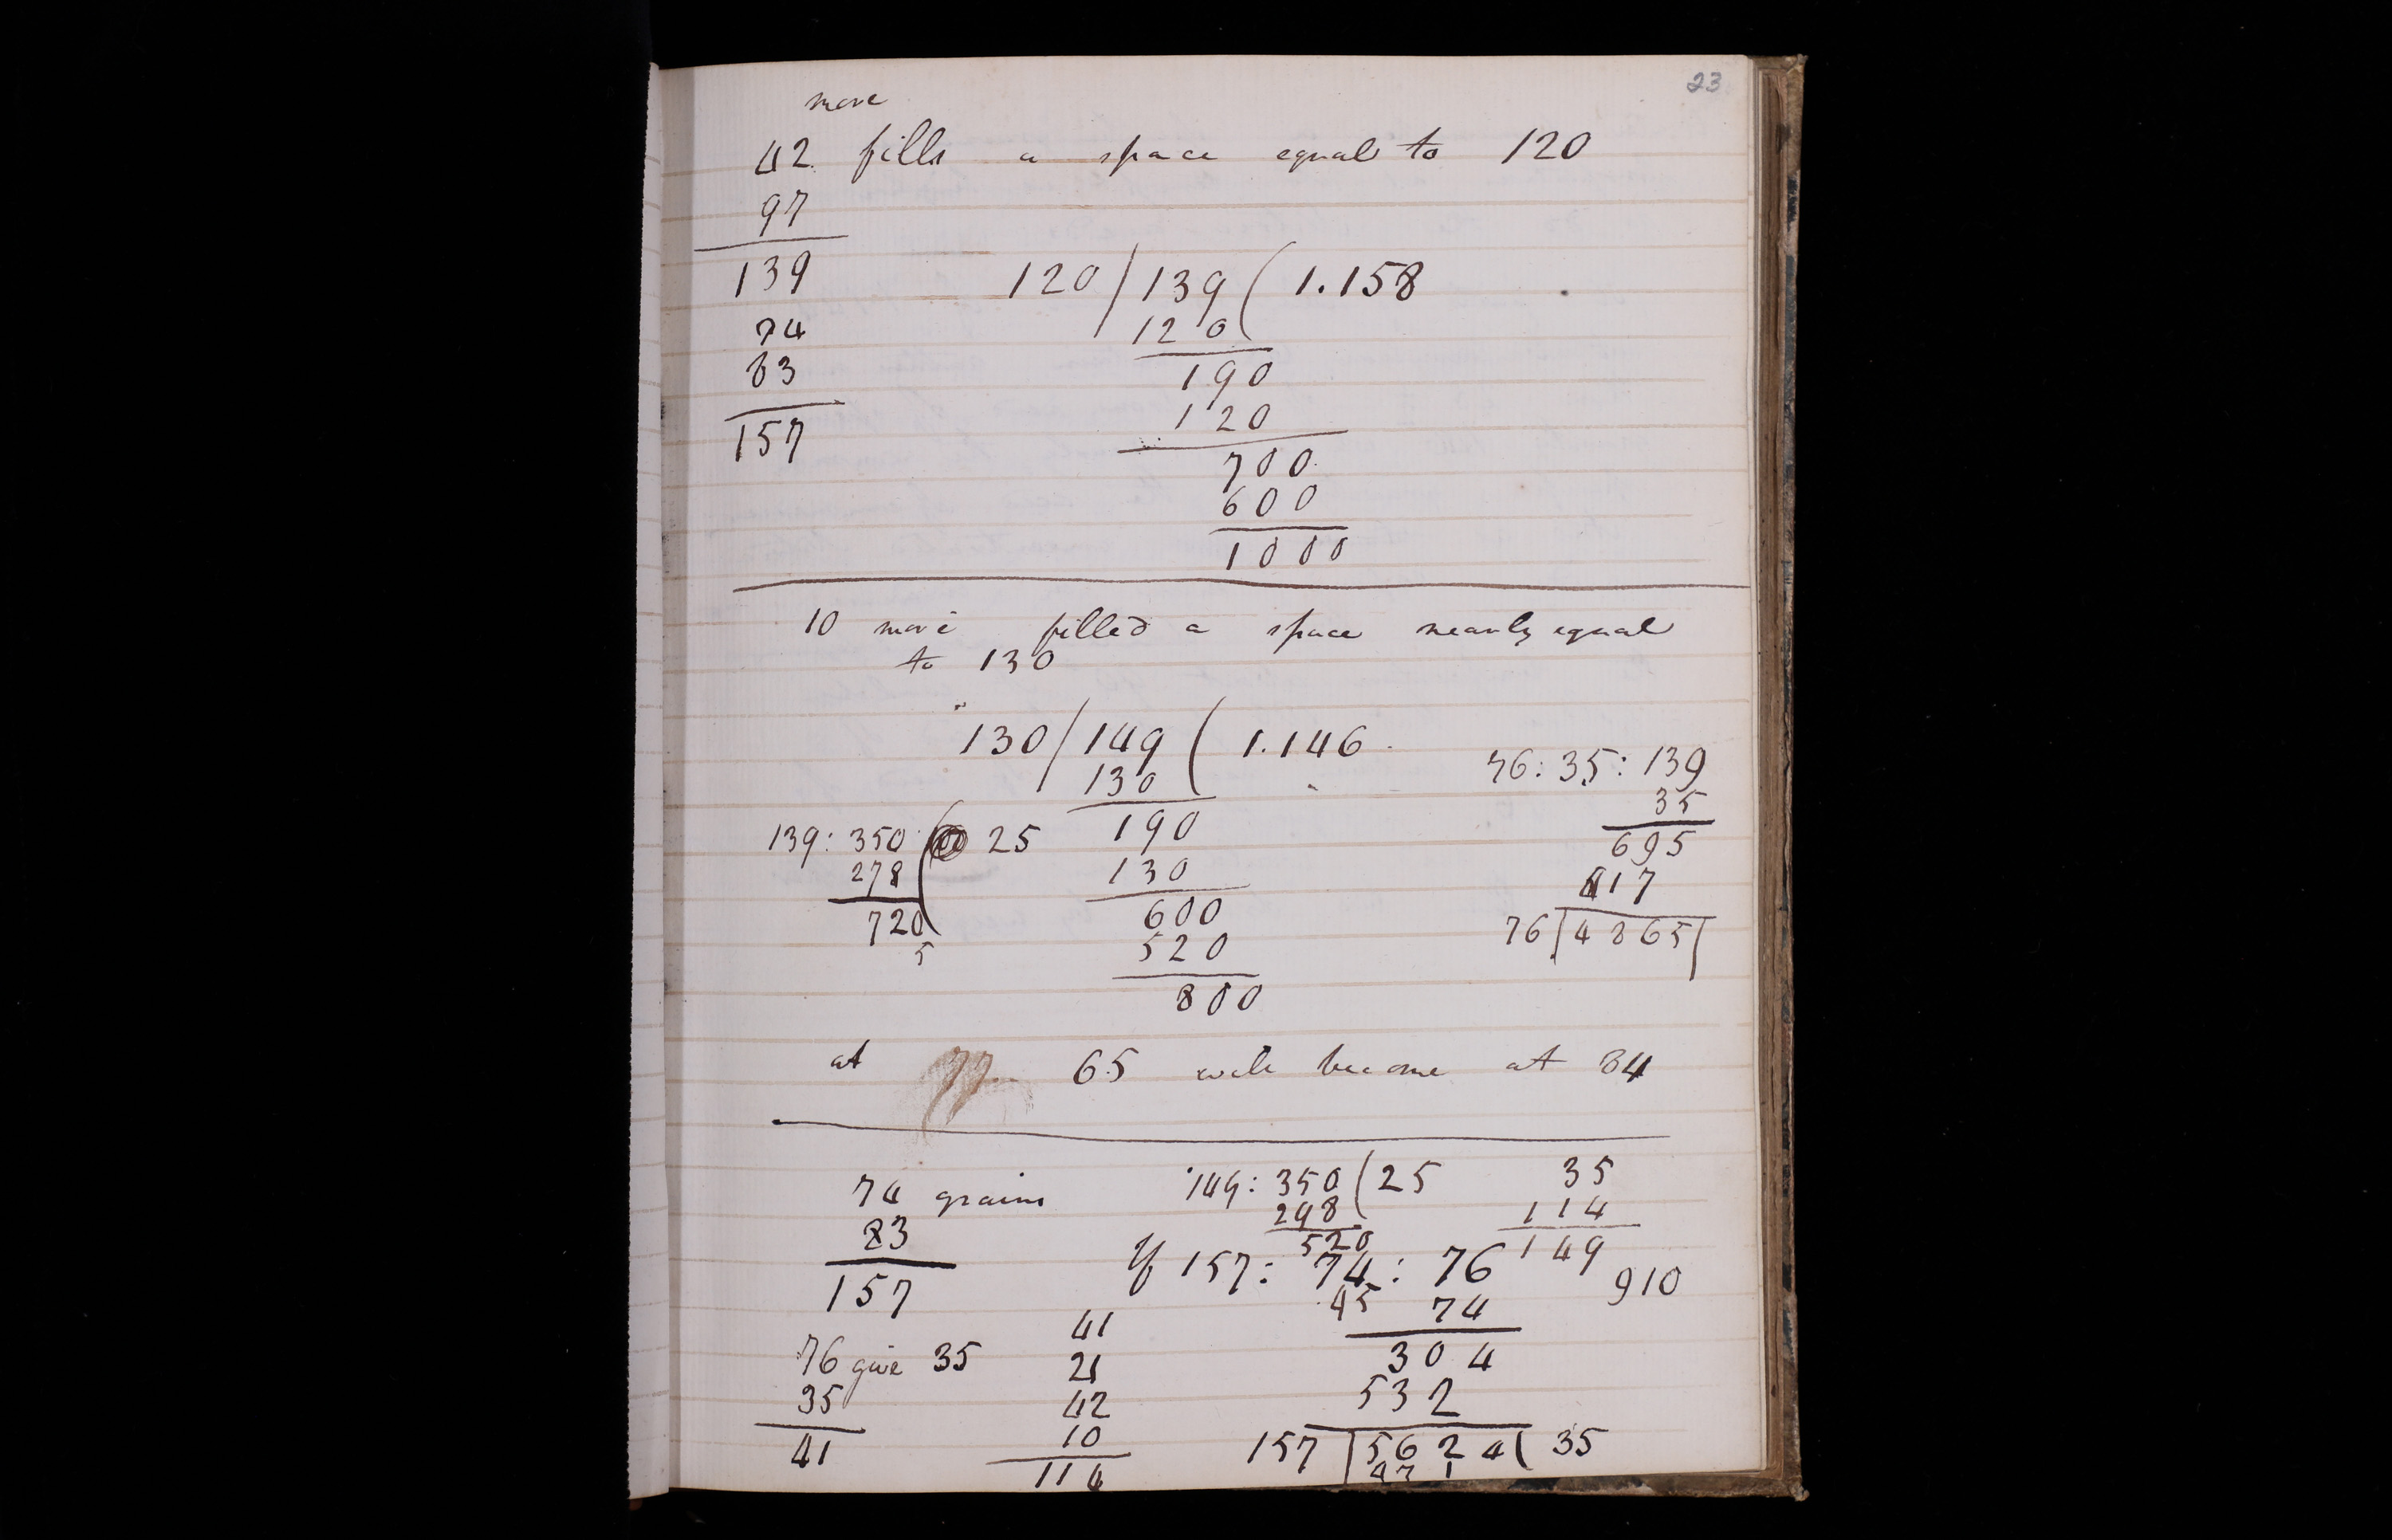 23
more
42 fills a space equal to 120
97
139
120 / 139 ( 1.158
74
120
83
190
120
157
700
600
1000
10 more filled a space nearly equal
to 130
130 / 149 ( 1.146
130
76 : 35 : 139
35
139 : 350 ( 25
190
695
278
130
417
720
600
76 | 4865 (
5
520
800
at 77 65 will become at 84
74 grains
149 : 350 ( 25
35
83
298
114
520
149
157
If 157 : 74 : 76
910
45
74
41
76 give 35
21
304
35
42
532
41
10
157 | 5624 ( 35
114
471